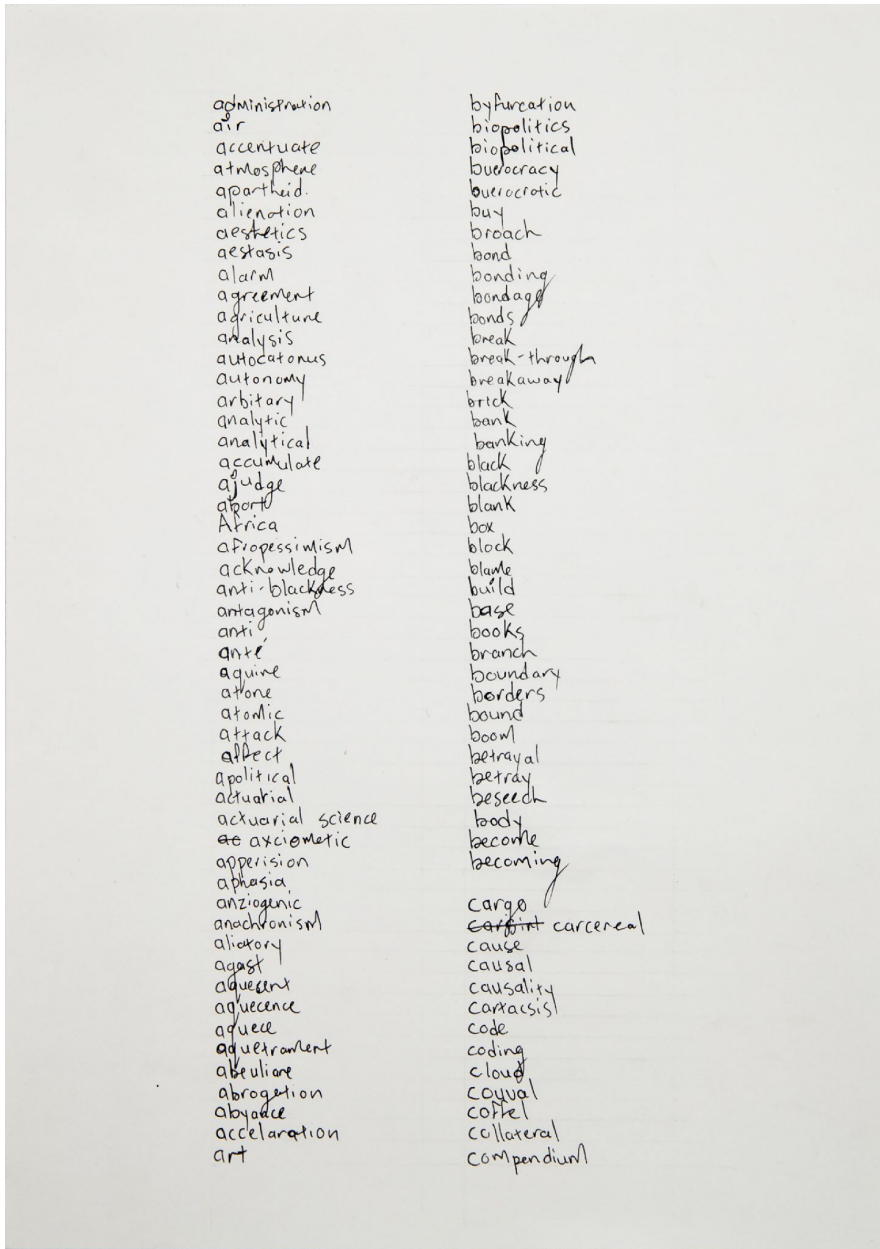 administration
air
accentuate
atmosphene
apartheid.
alienation
aestetics
aestasis
alarm
agreement
agriculture
analysis
autocatonus
autonomy
arbitary
analytic
analytical
accumulate
ajudge
abort
Africa
afropessimism
acknowledge
anti-blackness
antagonism
anti
anté
aquire
atone
atomic
attack
affect
apolitical
actuarial
actuarial science
ac axciometic
apperision
aphasia
anziogenic
anachronism
aliatory
agast
aquecent
aquecence
aquece
aquetrament
abeuliare
abrogation
abyance
accelaration
art
byfurcation
biopolitics
biopolitical
buerocracy
buerocratic
buy
broach
bond
bonding
bondage
bonds
break
break-through
breakaway
brick
bank
banking
black
blackness
blank
box
block
blame
build
base
books
branch
boundary
borders
bound
boom
betrayal
betray
beseech
body
become
becoming
cargo
carcereal
cause
causal
causality
cartacsis
code
coding
cloud
coyual
coffel
collateral
compendium